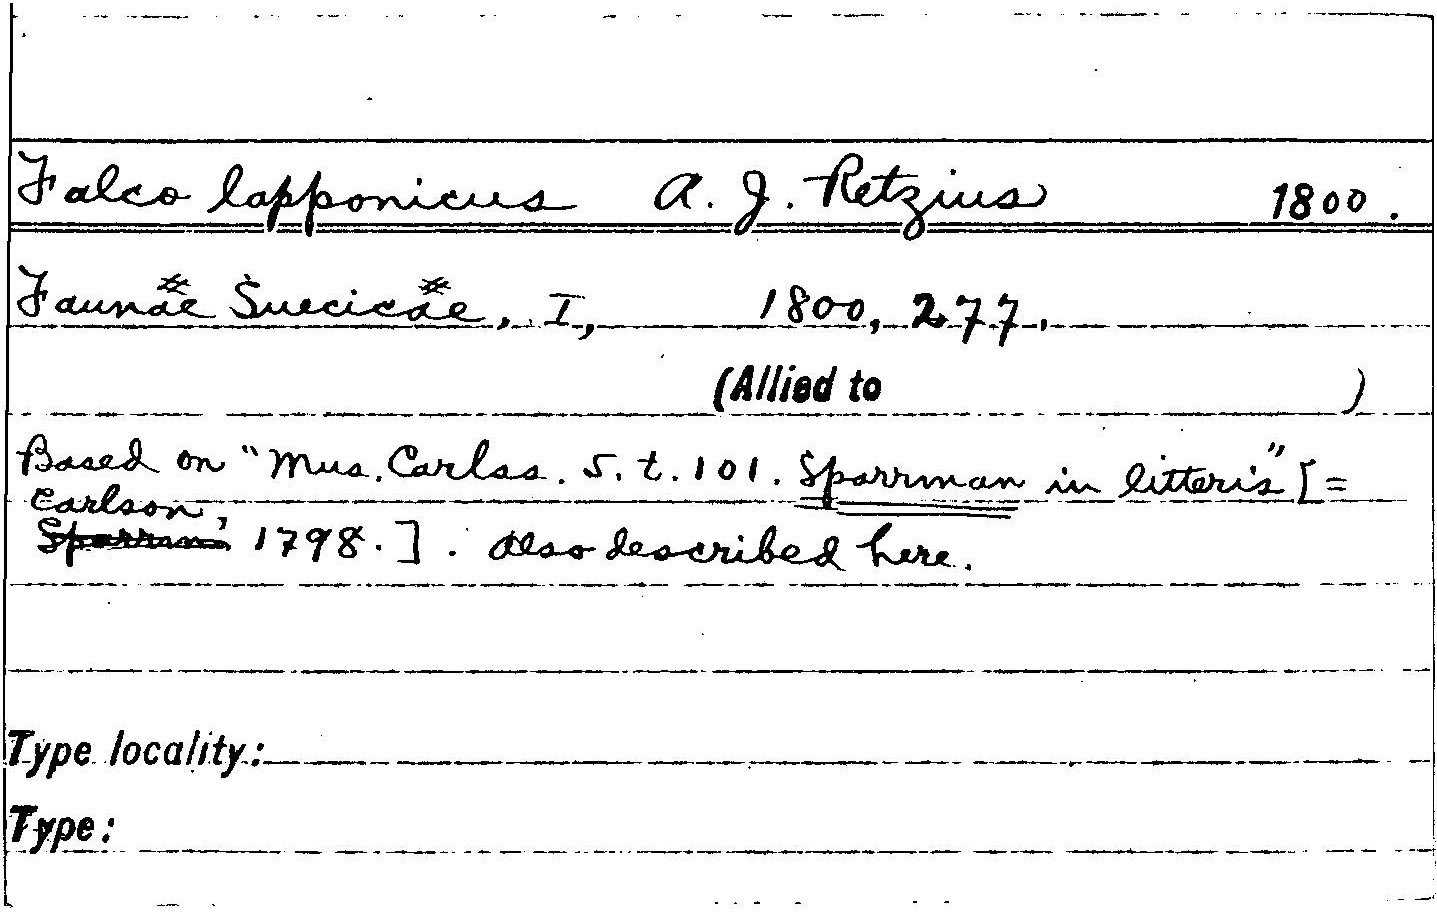 Falco lapponicus A. J. Retzius 1800.
Faunae Suecicae, I, 1800, 277.
(Allied to )
Based on "Mus. Carlss. S. t. 101. Sparrman in litteris" [=
Carlson,
1798.]. Also described here.
Type locality:
Type: